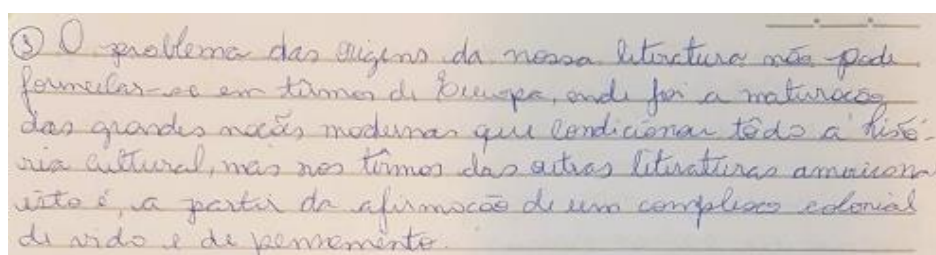 ③ O problema das origens da nossa literatura não pode
formular-se em têrmos de Europa, onde foi a maturação
das grandes nações modernas que condicionar tôdo a histó-
ria cultural, mas nos têrmos das outras literaturas american
isto é, a partir da afirmação de um complexo colonial
de vida e de pensamento.